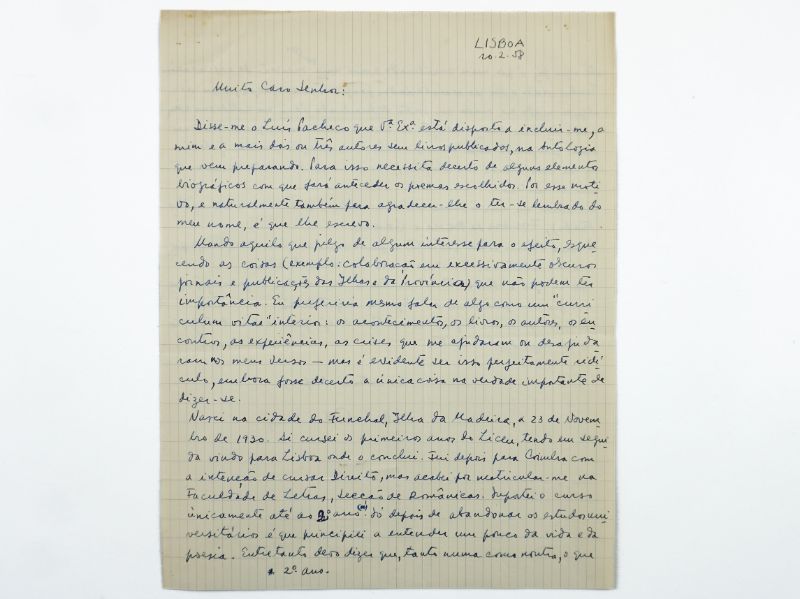 LISBOA
20-2-58
Muito Caro Senhor:
Disse-me o Luís Pacheco que Vª Exª está disposto a incluir-me, a
mim e a mais dois ou três autores sem livros publicados, na Antologia
que vem preparando. Para isso necessita decerto de alguns elementos
biográficos com que fará anteceder os poemas escolhidos. Por esse moti-
vo, e naturalmente também para agradecer-lhe o ter-se lembrado do
meu nome, é que lhe escrevo.
Mando aquilo que julgo de algum interesse para o efeito, esque-
cendo as coisas (exemplo: colaboração em excessivamente obscuros
jornais e publicações das Ilhas e da Província) que não podem ter
importância. Eu preferiria mesmo falar de algo como um "curri-
culum vitae" interior: os acontecimentos, os livros, os autores, os en-
contros, as experiências, as crises que me ajudaram ou desajuda-
ram nos meus versos — mas é evidente ser isso perfeitamente ridí-
culo, embora fosse decerto a única coisa na verdade importante de
dizer-se.
Nasci na cidade do Funchal, Ilha da Madeira, a 23 de Novem-
bro de 1930. Si cursei os primeiros anos do Liceu, tendo em segui-
da vindo para Lisboa onde o concluí. Fui depois para Coimbra com
a intenção de cursar Direito, mas acabei por matricular-me na
Faculdade de Letras, secção de Românicas. Suportei o curso
únicamente até ao 2º ano. Só depois de abandonar os estudos uni-
versitários é que principiei a entender um pouco da vida e da
poesia. Entretanto devo dizer que, tanto numa como noutra, o que
* 2º. ano.